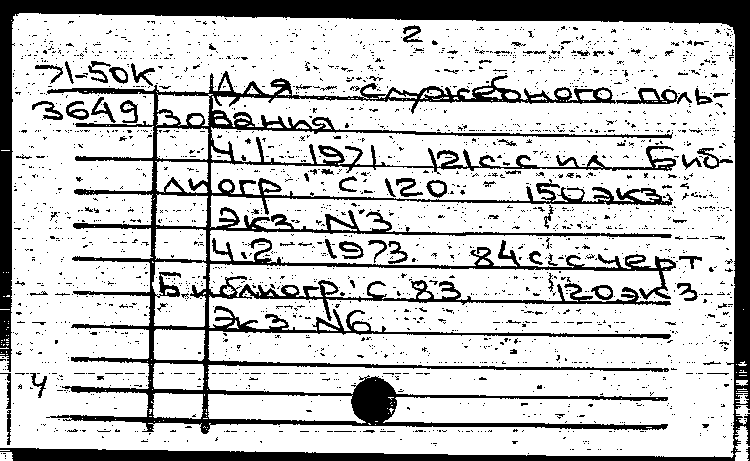 2.
71-50к Для служебного поль-
3649. зования.
Ч.1. 1971. 121с. с ил. Биб-
лиогр.: с. 120. 150 экз.
Экз. N3.
Ч.2. 1973. 84с. с черт.
Библиогр.: с. 83. 120 экз.
Экз. N6.
4